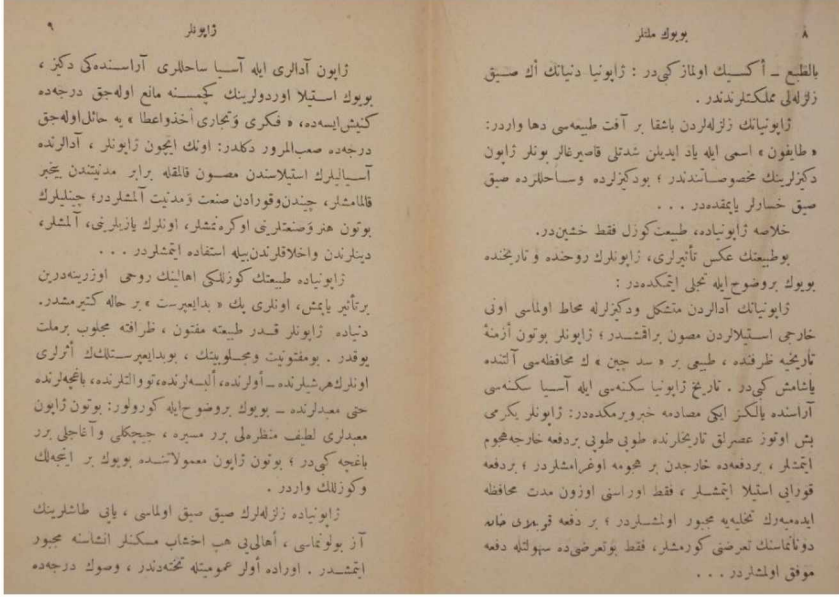 ٨
بویوك ملتلر
بالطبع ــ أكسیك اولماز كبی در : ژاپونیا دنیانك أك صیق
زلزله لی مملكتلرندندر .
ژاپونیانك زلزله لردن باشقا بر آفت طبیعه سی دها واردر :
« طایفون » اسمی ایله یاد ایدیلن شدتلی قاصیرغالر بونلر ژاپون
دكزلرینك مخصوصاتندندر ؛ بودكیزلرده وساحللرده صیق
صیق خسارلر یاپمقده در . . .
خلاصه ژاپونیاده، طبیعت كوزل فقط خشین در.
بوطبیعتك عكس تأثیرلری، ژاپونلرك روحنده و تاریخنده
بویوك بروضوح ایله تجلی ایتمكده در :
ژاپونیانك آدالردن متشكل ودكیزلرله محاط اولماسی اونی
خارجی استیلالردن مصون براقمشدر ؛ ژاپونلر بوتون أزمنهٔ
تاریخیه ظرفنده ، طبیعی بر « سد چین » ك محافظه سی آلتنده
یاشامش كبی در . تاریخ ژاپونیا سكنه سی ایله آسیا سكنه سی
آراسنده یالكز ایكی مصادمه خبر ویرمكده در: ژاپونلر یكرمی
بش اوتوز عصرلق تاریخلرنده طوپی طوپی بردفعه خارجه هجوم
ایتمشلر ، بردفعه ده خارجدن بر هجومه اوغرامشلردر ؛ بردفعه
قورایی استیلا ایتمشلر ، فقط اوراسنی اوزون مدت محافظه
ایده میه رك تخلیه یه مجبور اولمشلردر ؛ بر دفعه قوبلای خان
دونانماسنك تعرضنی كورمشلر، فقط بوتعرضی ده سهولتله دفعه
موفق اولمشلردر . . .
ژاپونلر
٩
ژاپون آدالری ایله آسیا ساحللری آراسنده كی دكیز ،
بویوك استیلا اوردولرینك كچمسنه مانع اوله جق درجه ده
كنیش ایسه ده، « فكری و تجاری أخذ واعطا » یه حائل اوله جق
درجه ده صعب المرور دكلدر: اونك ایچون ژاپونلر ، آدالرنده
آسیالیلرك استیلاسندن مصون قالمقله برابر مدنیتندن بیخبر
قالمامشلر، چیندن وقورادن صنعت و مدنیت آلمشلردر؛ چینلیلرك
بوتون هنر و صنعتلرینی اوكره نمشلر، اونلرك یازیلرینی، آلمشلر،
دینلرندن واخلاقلرندن بیله استفاده ایتمشلردر . . .
ژاپونیاده طبیعتك كوزللكی اهالینك روحی اوزرینه درین
برتأثیر یاپمش، اونلری پك « بدایعپرست » بر حاله كتیرمشدر.
دنیاده ژاپونلر قدر طبیعته مفتون ، ظرافته مجلوب برملت
یوقدر . بومفتونیت ومجلوبیتك ، بوبدایعپرستلكك أثرلری
اونلرك هرشیلرنده ــ أولرنده، ألبسه لرنده، تووالتلرنده، باغچه لرنده
حتی معبدلرنده ــ بویوك بروضوح ایله كورولور: بوتون ژاپون
معبدلری لطیف منظره لی برر مسیره ، چیچكلی وآغاجلی برر
باغچه كبی در ؛ بوتون ژاپون معمولاتنده بویوك بر اینجه لك
وكوزللك واردر .
ژاپونیاده زلزله لرك صیق صیق اولماسی ، یاپی طاشلرینك
آز بولونماسی ، أهالی یی هپ اخشاب مسكنلر انشاسنه مجبور
ایتمشدر . اوراده أولر عمومیتله تخته دندر ، وصوك درجه ده